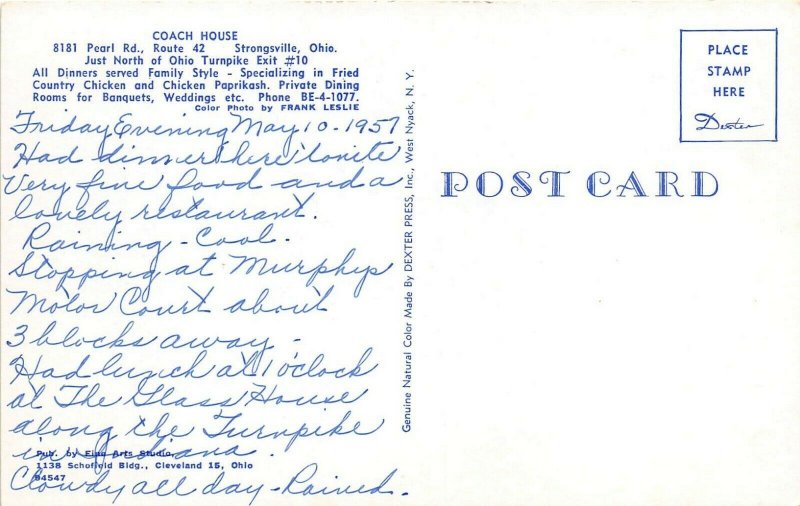 COACH HOUSE
8181 Pearl Rd., Route 42 Strongsville, Ohio.
Just North of Ohio Turnpike Exit #10
All Dinners served Family Style - Specializing in Fried
Country Chicken and Chicken Paprikash. Private Dining
Rooms for Banquets, Weddings etc. Phone BE-4-1077.
Color Photo by FRANK LESLIE
Friday Evening May 10-1957
Had dinner here tonite
Very fine food and a
lovely restaurant.
Raining - Cool.
Stopping at Murphys
Motor Court about
3 blocks away -
Had lunch at 1 o'clock
at The Glass House
along the Turnpike
in Indiana.
Pub. by Fine Arts Studio,
1138 Schofield Bldg., Cleveland 15, Ohio
94547
Cloudy all day - Rained.
Genuine Natural Color Made By DEXTER PRESS, Inc., West Nyack, N. Y.
POST CARD
PLACE
STAMP
HERE
Dexter